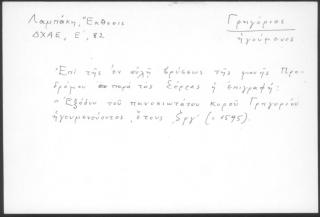 Λαμπάκη, Ἔκθεσις
ΔΧΑΕ, Ε΄, 82
Γρηγόριος
ἡγούμενος
Ἐπί τῆς ἐν αὐλῇ βρύσεως τῆς μονῆς Προ-
δρόμου παρά τας Σέρρας ἡ ἐπιγραφή:
«Ἐξόδου τοῦ πανοσιωτάτου κυροῦ Γρηγορίου
ἡγουμενεύοντος, ἔτους ͵ζργ΄ (: 1595).